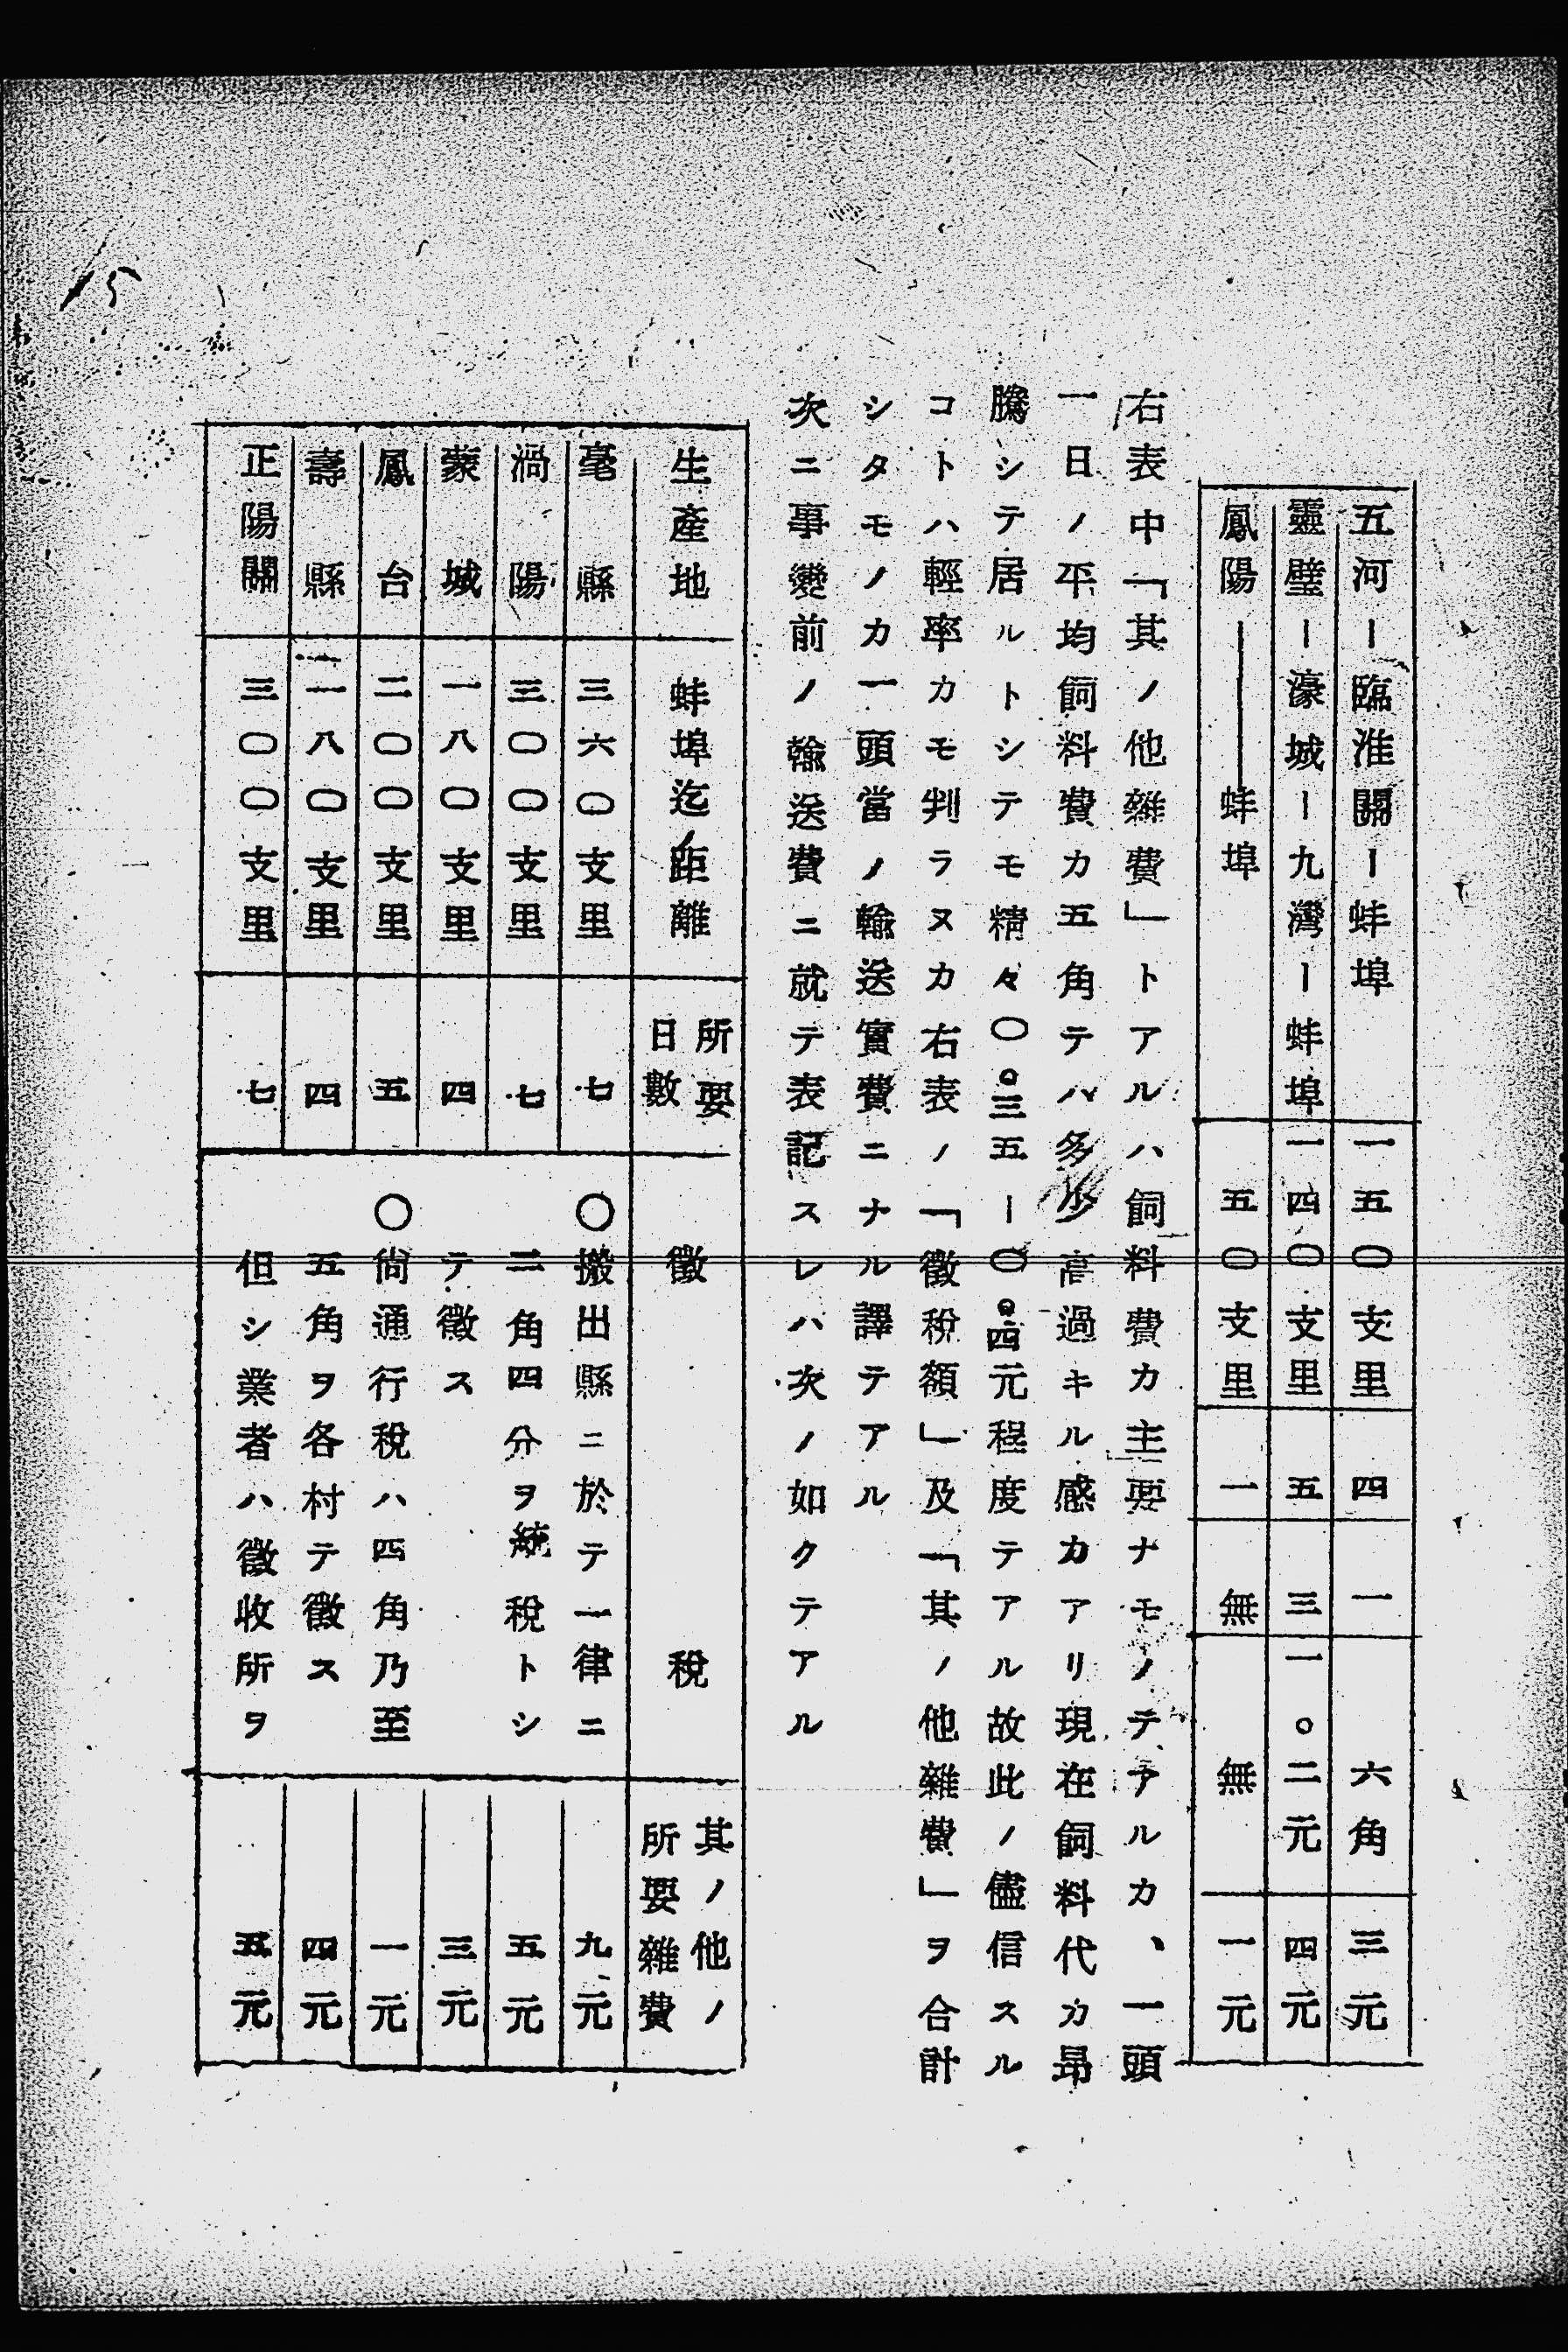 五河ー臨淮關ー蚌埠 一五〇支里 四 一 六角 三元
靈璧ー濠城ー九灣ー蚌埠 一四〇支里 五 三 一。二元 四元
鳳陽――蚌埠 五〇支里 一 無 無 一元
右表中「其ノ他雜費」トアルハ飼料費カ主要ナモノテアルカ、一頭
一日ノ平均飼料費カ五角テハ多少高過キル感カアリ現在飼料代カ昂
騰シテ居ルトシテモ精々〇。三五ー〇。四元程度テアル故此ノ儘信スル
コトハ輕率カモ判ラヌカ右表ノ「徵稅額」及「其ノ他雜費」ヲ合計
シタモノカ一頭當ノ輸送實費ニナル譯テアル
次ニ事變前ノ輸送費ニ就テ表記スレハ次ノ如クテアル
生產地 蚌埠迄ノ距離 所要日數 徵稅 其ノ他ノ所要雜費
亳縣 三六〇支里 七 〇搬出縣ニ於テ一律ニ 九元
渦陽 三〇〇支里 七 二角四分ヲ統稅トシ 五元
蒙城 一八〇支里 四 テ徵ス 三元
鳳台 二〇〇支里 五 〇尙通行稅ハ四角乃至 一元
壽縣 一八〇支里 四 五角ヲ各村テ徵ス 四元
正陽關 三〇〇支里 七 但シ業者ハ徵收所ヲ 五元